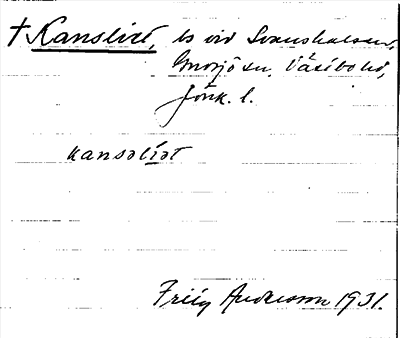 † Kanslist, ls vid Svanshalsen,
Gnosjö sn, Västbo hd,
Jönk. l.
kansəlist
Fritz Andersson 1931.